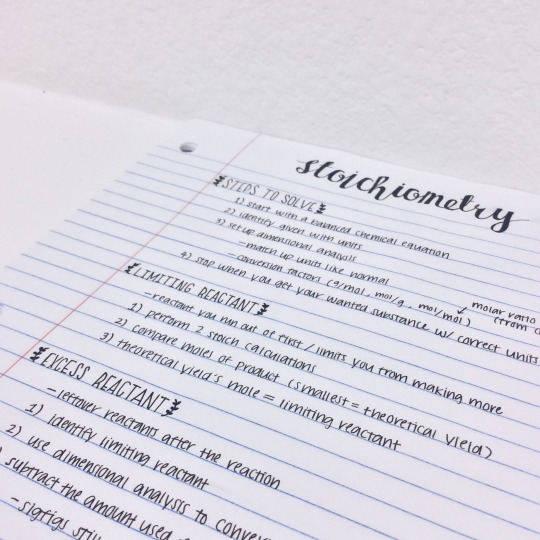 stoichiometry
STEPS TO SOLVE
1) start with a balanced chemical equation
2) identify given with units
3) set up dimensional analysis
-match up units like normal
-conversion factors (g/mol, mol/g, mol/mol)
molar ratio
(from
4) stop when you get your wanted substance w/ correct units
LIMITING REACTANT
-reactant you run out of first / limits you from making more
1) perform 2 stoich calculations
2) compare moles of product (smallest = theoretical yield)
3) theoretical yield's mole = limiting reactant
EXCESS REACTANT
-leftover reactants after the reaction
1) identify limiting reactant
2) use dimensional analysis to
subtract the amount used
-sigfigs still